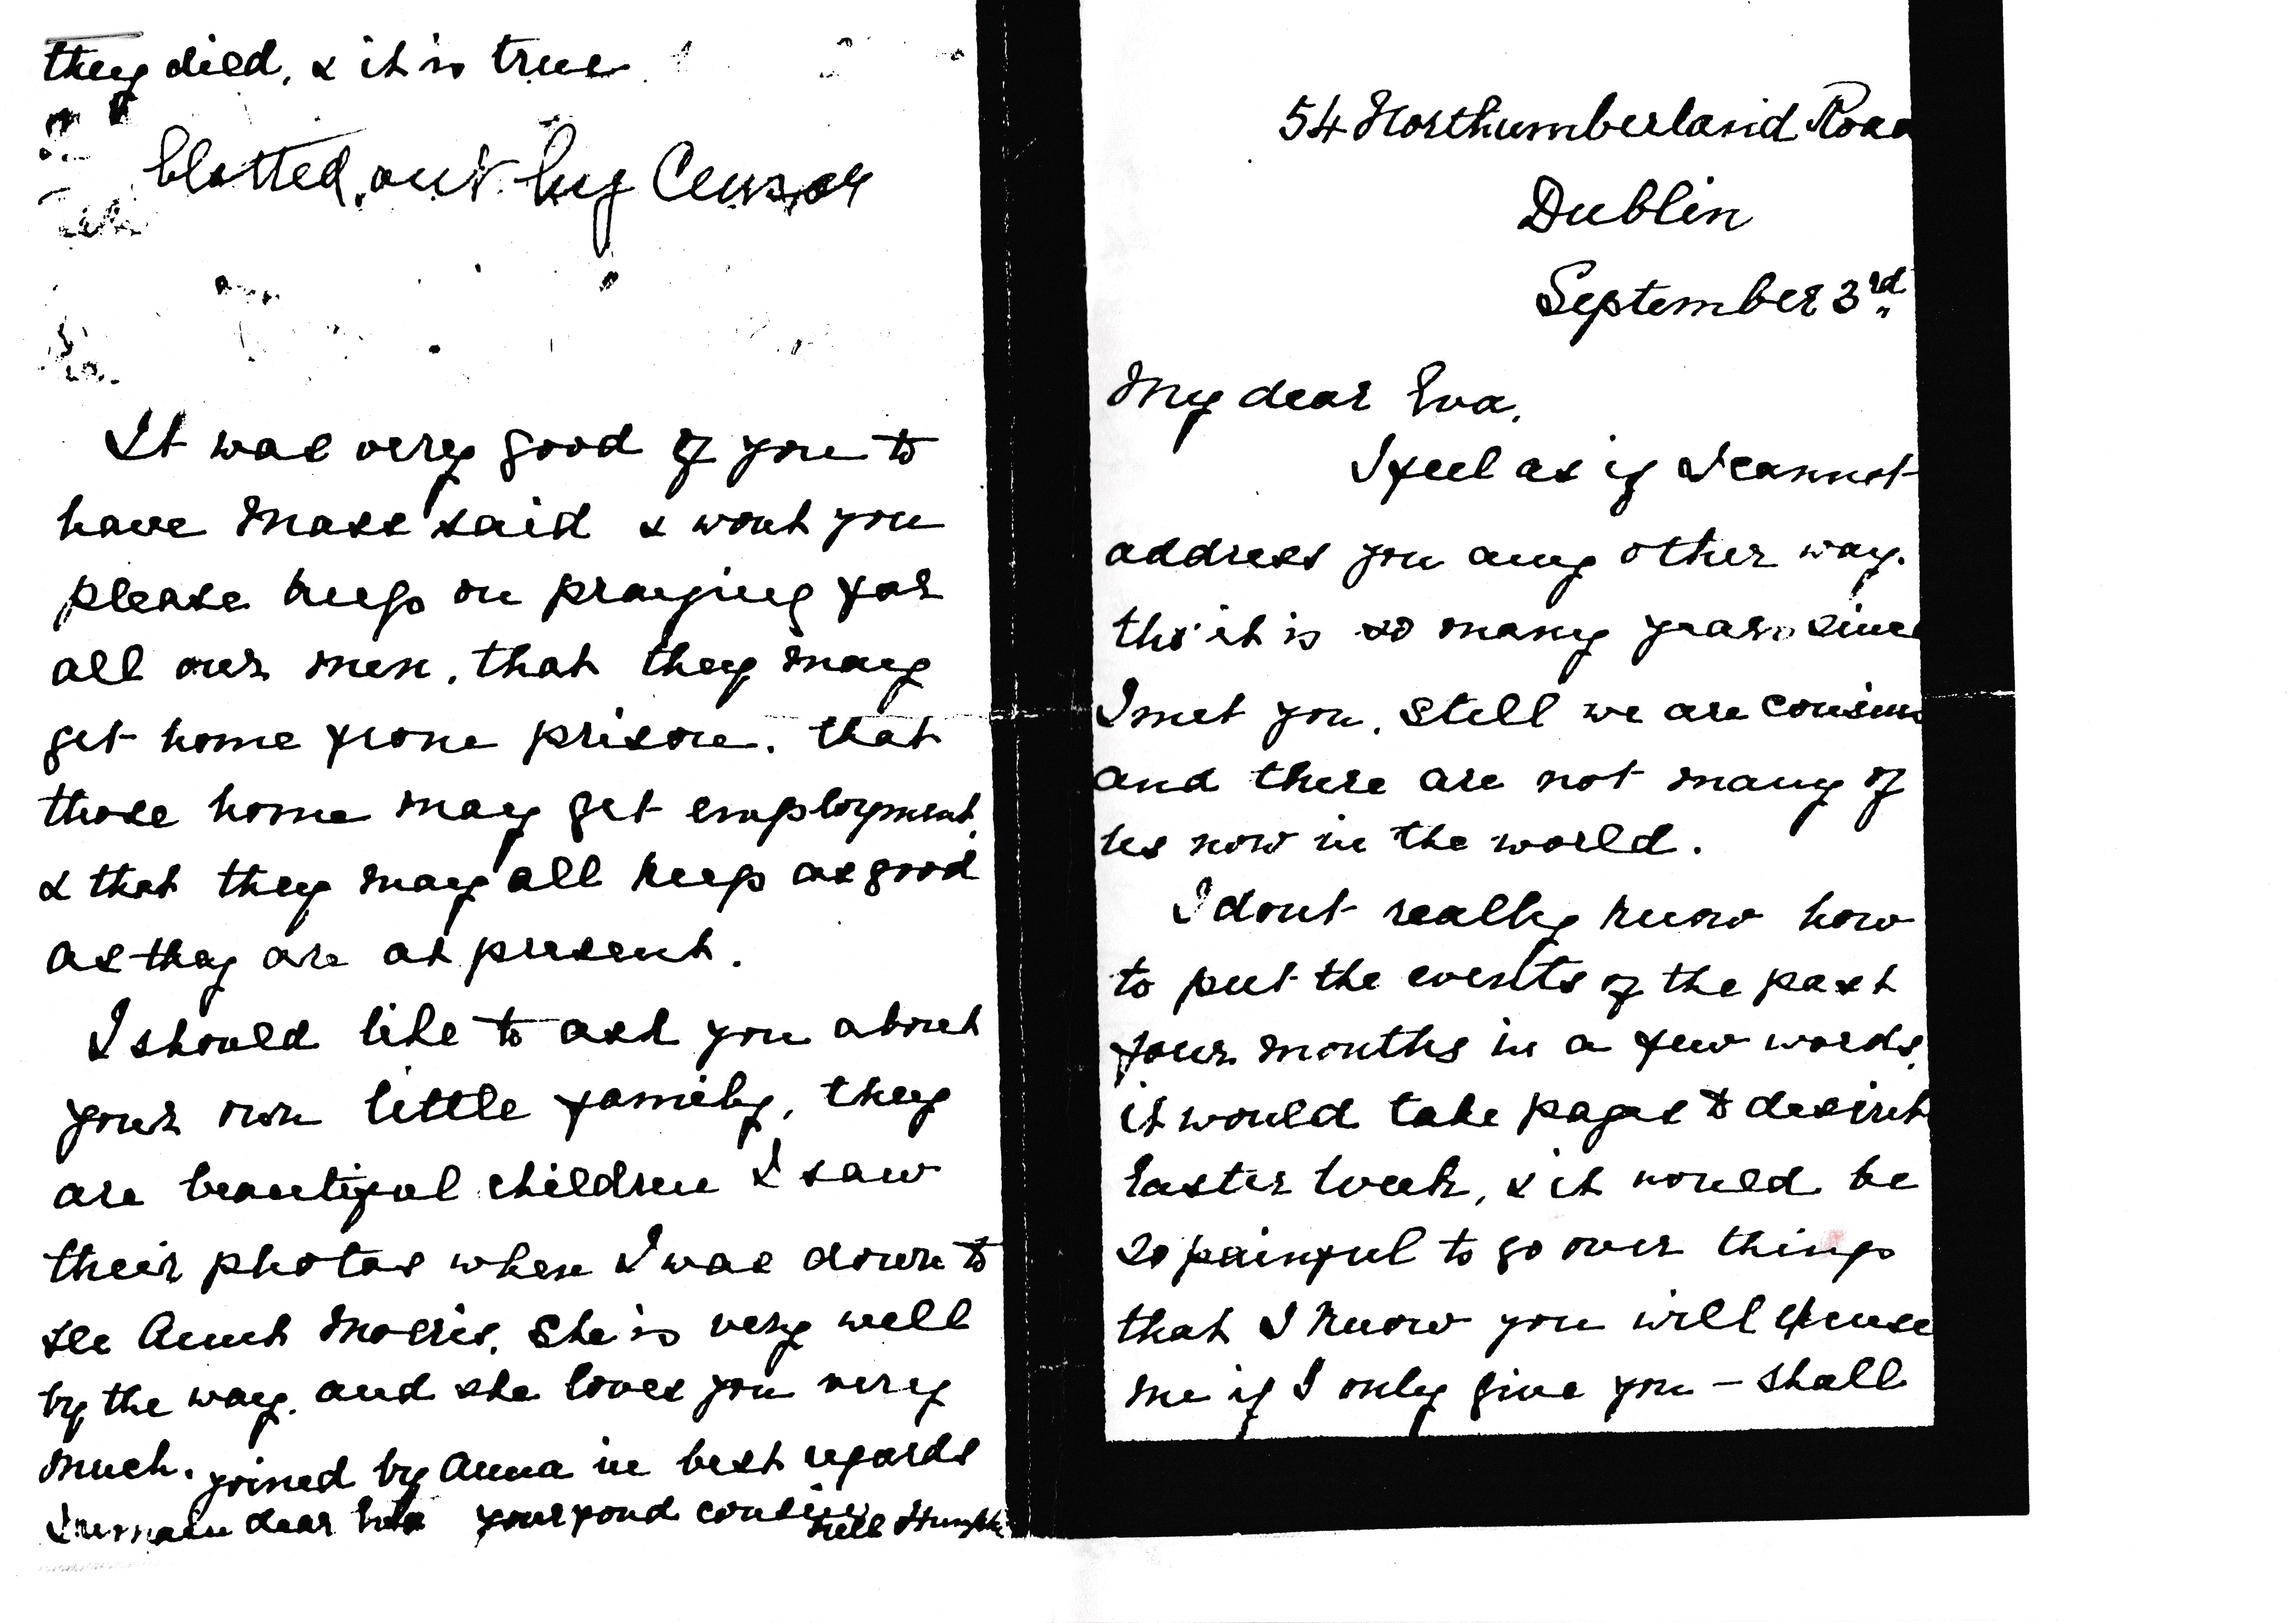 54 Northumberland Road
Dublin
September 3rd
My dear Eva,
I feel as if I cannot
address you any other way.
tho' it is so many years since
I met you. Still we are cousins
and there are not many of
us now in the world.
I dont really know how
to put the events of the past
four months in a few words,
it would take pages to describe
Easter Week, & it would be
so painful to go over things
that I know you will excuse
me if I only give you — shall
they died, & it is true
blotted out by Censor
It was very good of you to
have Mass said & wont you
please keep on praying for
all our men, that they may
get home from prison. that
those home may get employment,
& that they may all keep as good
as they are at present.
I should like to ask you about
your own little family, they
are beautiful children I saw
their photos when I was down to
see Aunt Morris. She is very well
by the way. and she loves you very
much. joined by Anna in best regards
I remain dear Eva your fond cousin
Nell